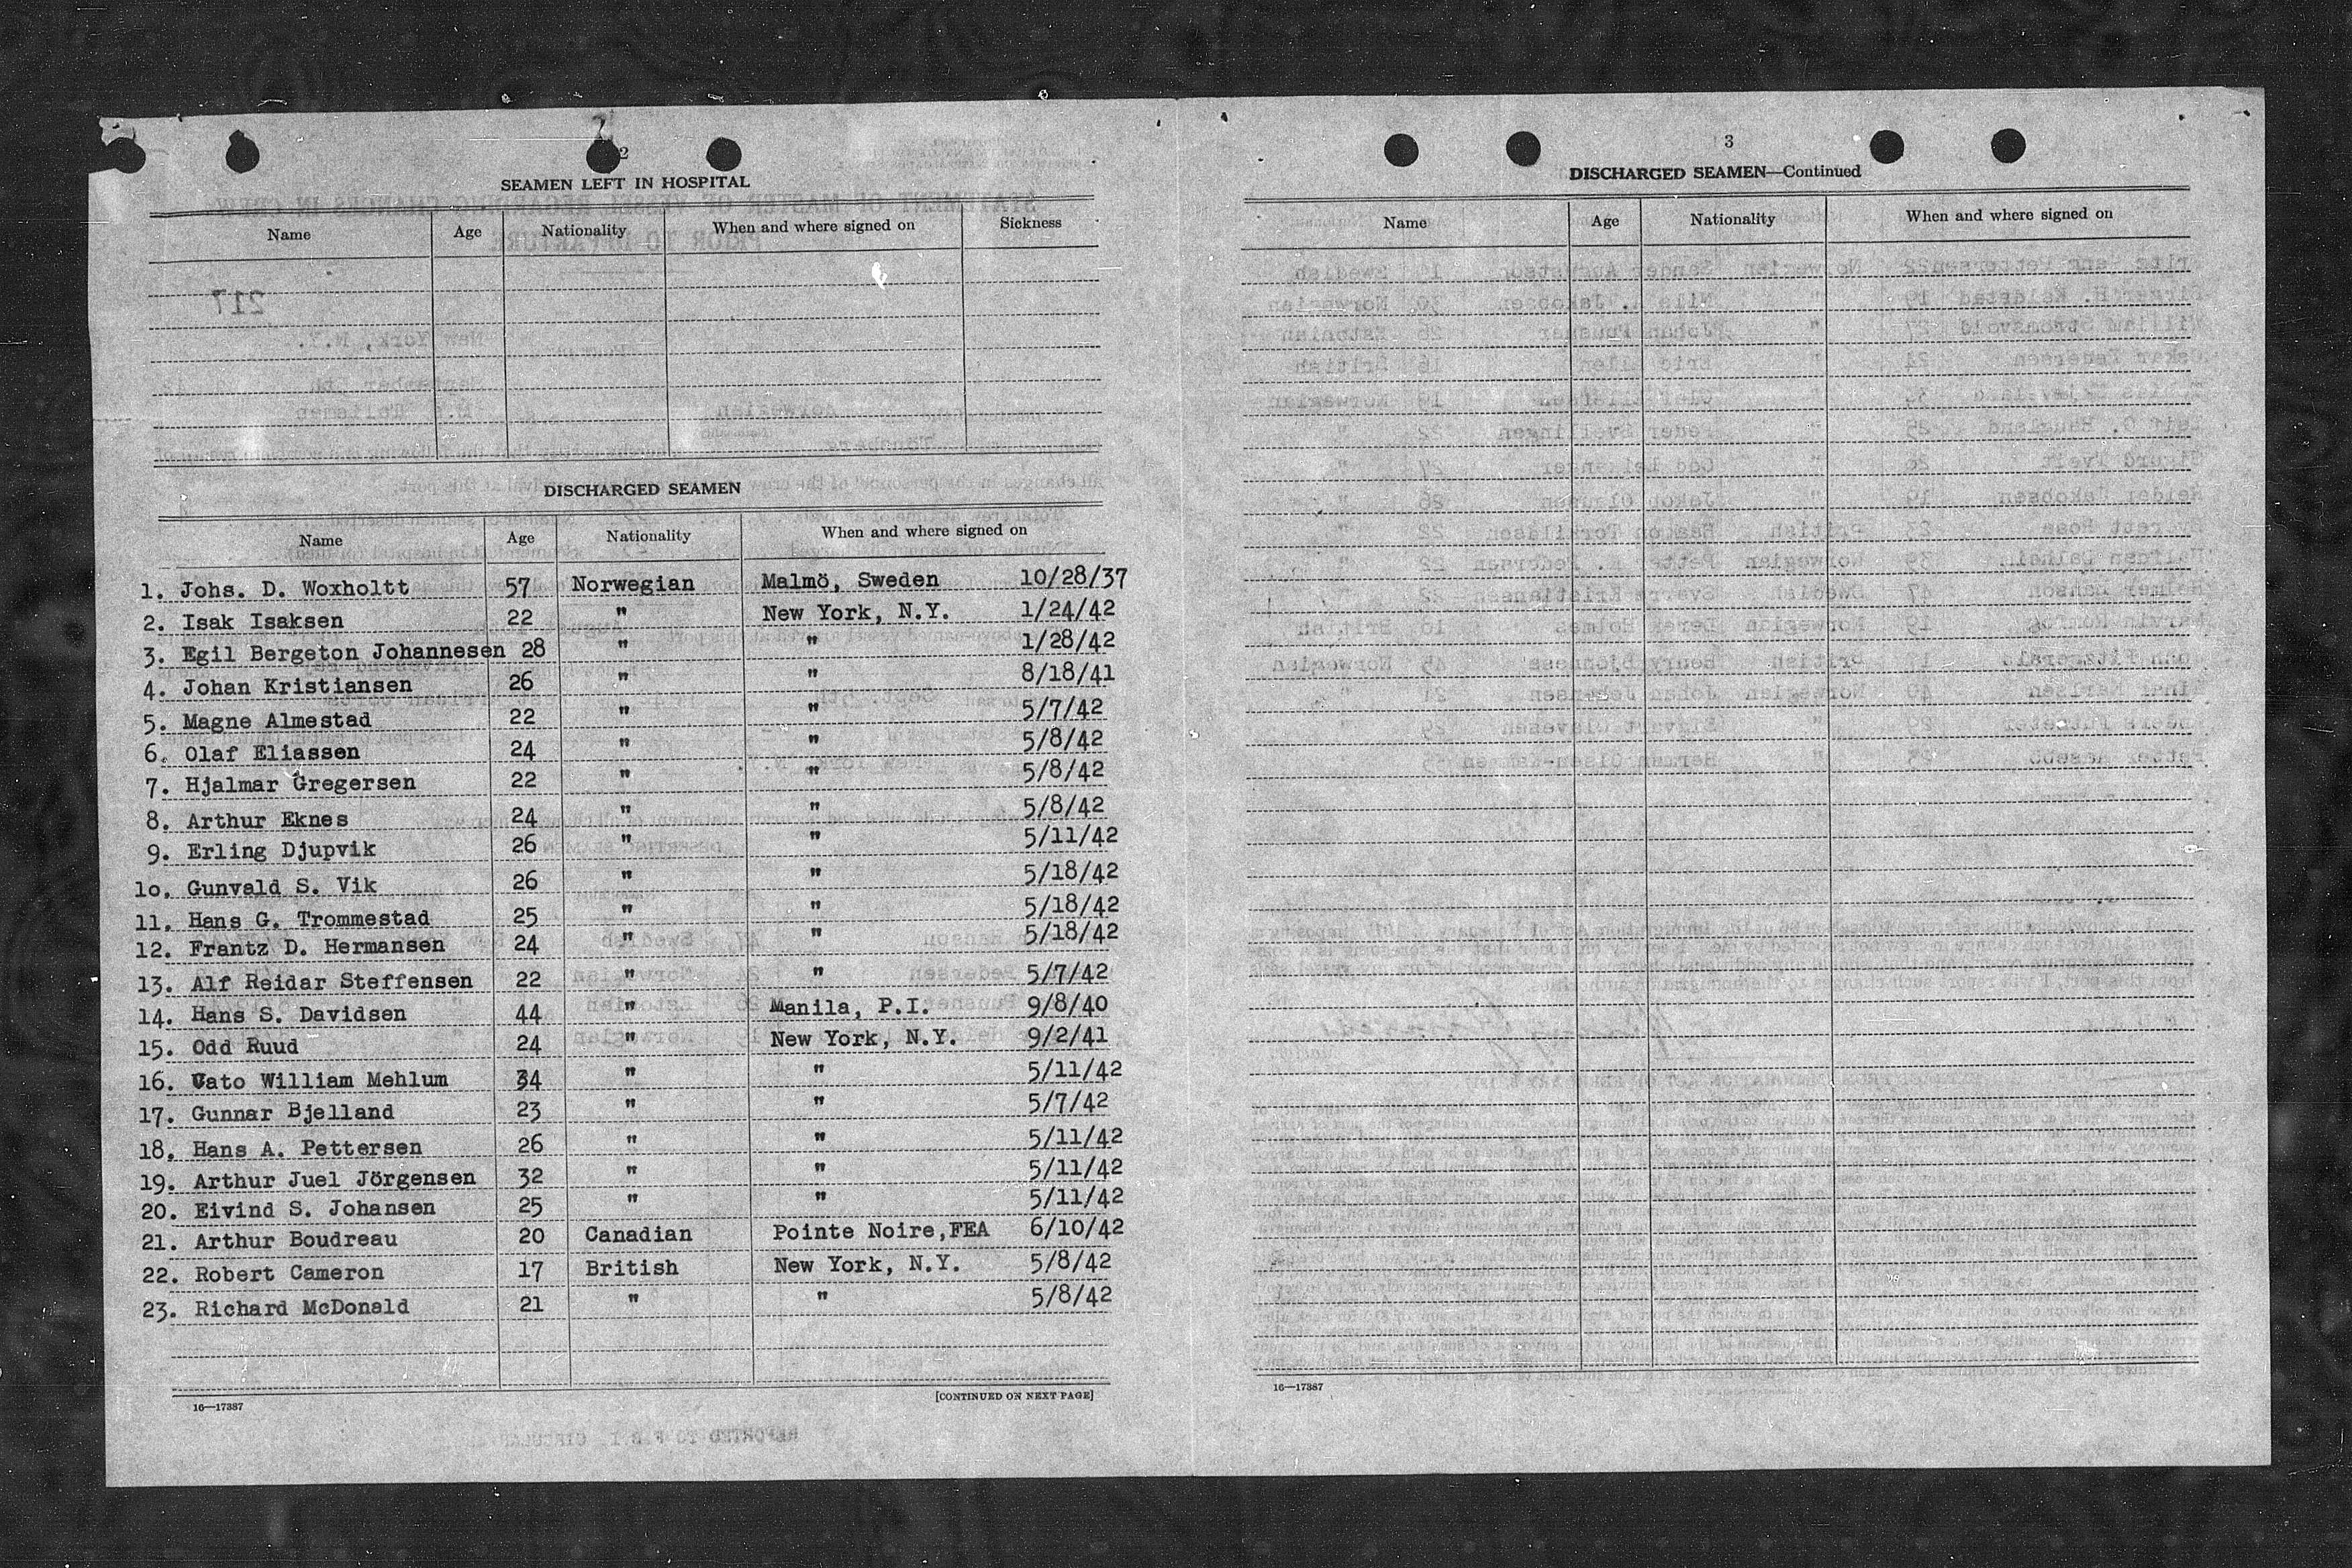 2
SEAMEN LEFT IN HOSPITAL
Name Age Nationality When and where signed on Sickness
DISCHARGED SEAMEN
Name Age Nationality When and where signed on
1. Johs. D. Woxholtt 57 Norwegian Malmö, Sweden 10/28/37
2. Isak Isaksen 22 " New York, N.Y. 1/24/42
3. Egil Bergeton Johannesen 28 " " 1/28/42
4. Johan Kristiansen 26 " " 8/18/41
5. Magne Almestad 22 " " 5/7/42
6. Olaf Eliassen 24 " " 5/8/42
7. Hjalmar Gregersen 22 " " 5/8/42
8. Arthur Eknes 24 " " 5/8/42
9. Erling Djupvik 26 " " 5/11/42
1o. Gunvald S. Vik 26 " " 5/18/42
11. Hans G. Trommestad 25 " " 5/18/42
12. Frantz D. Hermansen 24 " " 5/18/42
13. Alf Reidar Steffensen 22 " " 5/7/42
14. Hans S. Davidsen 44 " Manila, P.I. 9/8/40
15. Odd Ruud 24 " New York, N.Y. 9/2/41
16. Cato William Mehlum 34 " " 5/11/42
17. Gunnar Bjelland 23 " " 5/7/42
18. Hans A. Pettersen 26 " " 5/11/42
19. Arthur Juel Jörgensen 32 " " 5/11/42
20. Eivind S. Johansen 25 " " 5/11/42
21. Arthur Boudreau 20 Canadian Pointe Noire,FEA 6/10/42
22. Robert Cameron 17 British New York, N.Y. 5/8/42
23. Richard McDonald 21 " " 5/8/42
16—17387 [CONTINUED ON NEXT PAGE]
3
DISCHARGED SEAMEN—Continued
Name Age Nationality When and where signed on
16—17387